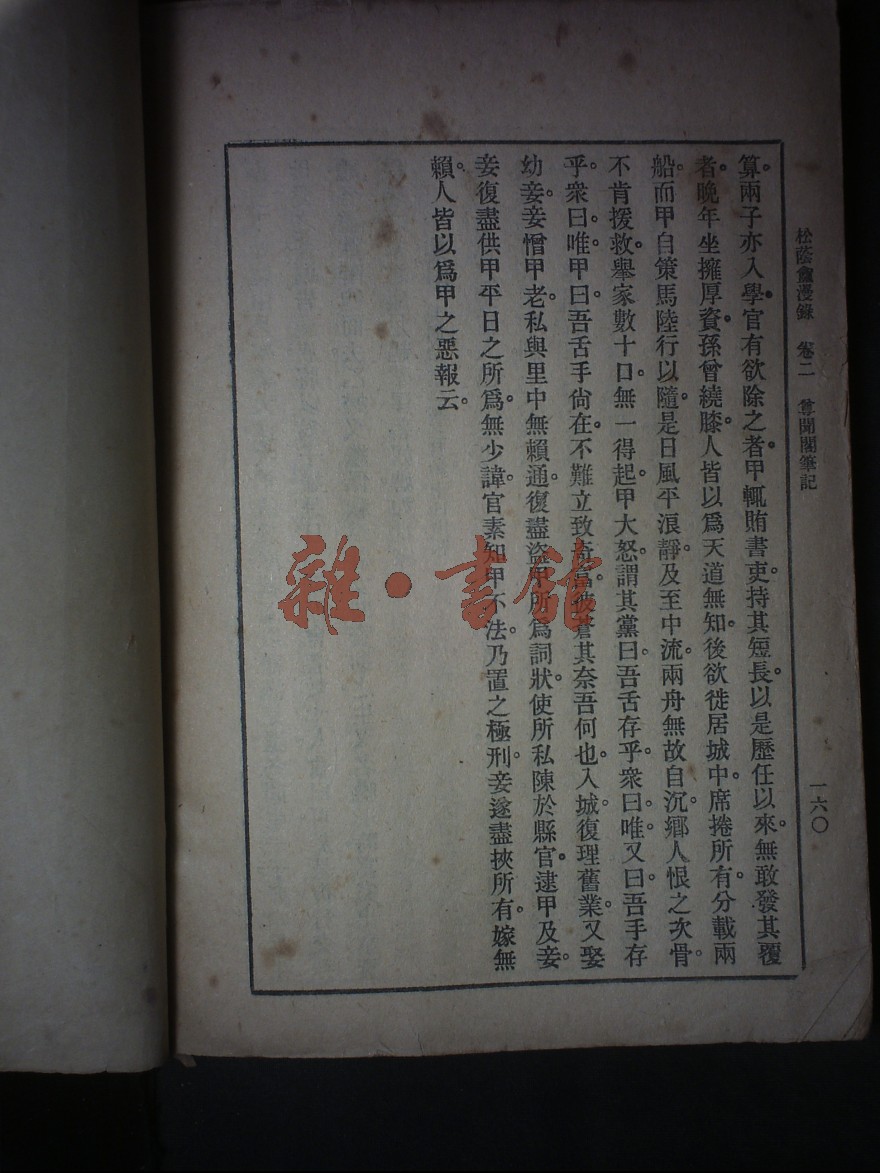 松蔭盦漫錄 卷二 尊聞閣筆記
一六〇
算。兩子亦入學。官有欲除之者。甲輒賄書吏。持其短長。以是歷任以來。無敢發其覆
者。晚年坐擁厚資。孫曾繞膝。人皆以爲天道無知。後欲徙居城中。席捲所有。分載兩
船。而甲自策馬陸行以隨。是日風平浪靜。及至中流。兩舟無故自沉。鄉人恨之次骨。
不肯援救。舉家數十口。無一得起。甲大怒。謂其黨曰。吾舌存乎。衆曰。唯。又曰。吾手存
乎。衆曰。唯。甲曰。吾舌手尙在。不難立致。蒼其奈吾何也。入城。復理舊業。又娶
幼妾。妾憎甲老。私與里中無賴通。復盡盜甲所爲詞狀。使所私陳於縣官。逮甲及妾。
妾復盡供甲平日之所爲。無少諱。官素知甲不法。乃置之極刑。妾遂盡挾所有。嫁無
賴。人皆以爲甲之惡報云。
雜·書館